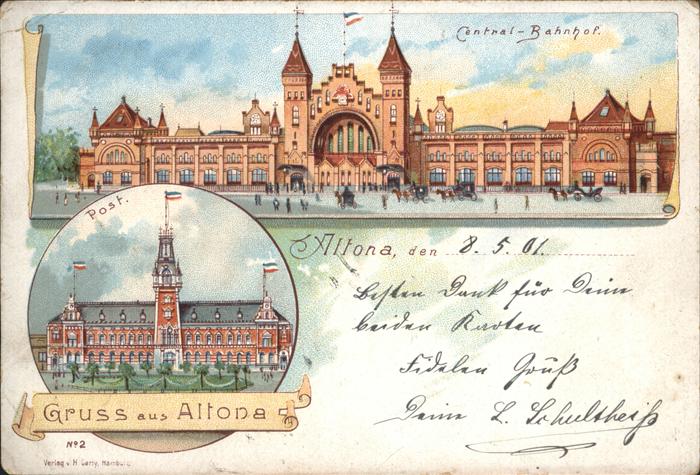 Central-Bahnhof.
Post.
Altona, den 8. 5. 01.
Besten Dank für Deine
beiden Karten
Fidelen Gruß
Deine L. Schultheiß
Gruss aus Altona
No 2
Verlag v. H. Hamburg